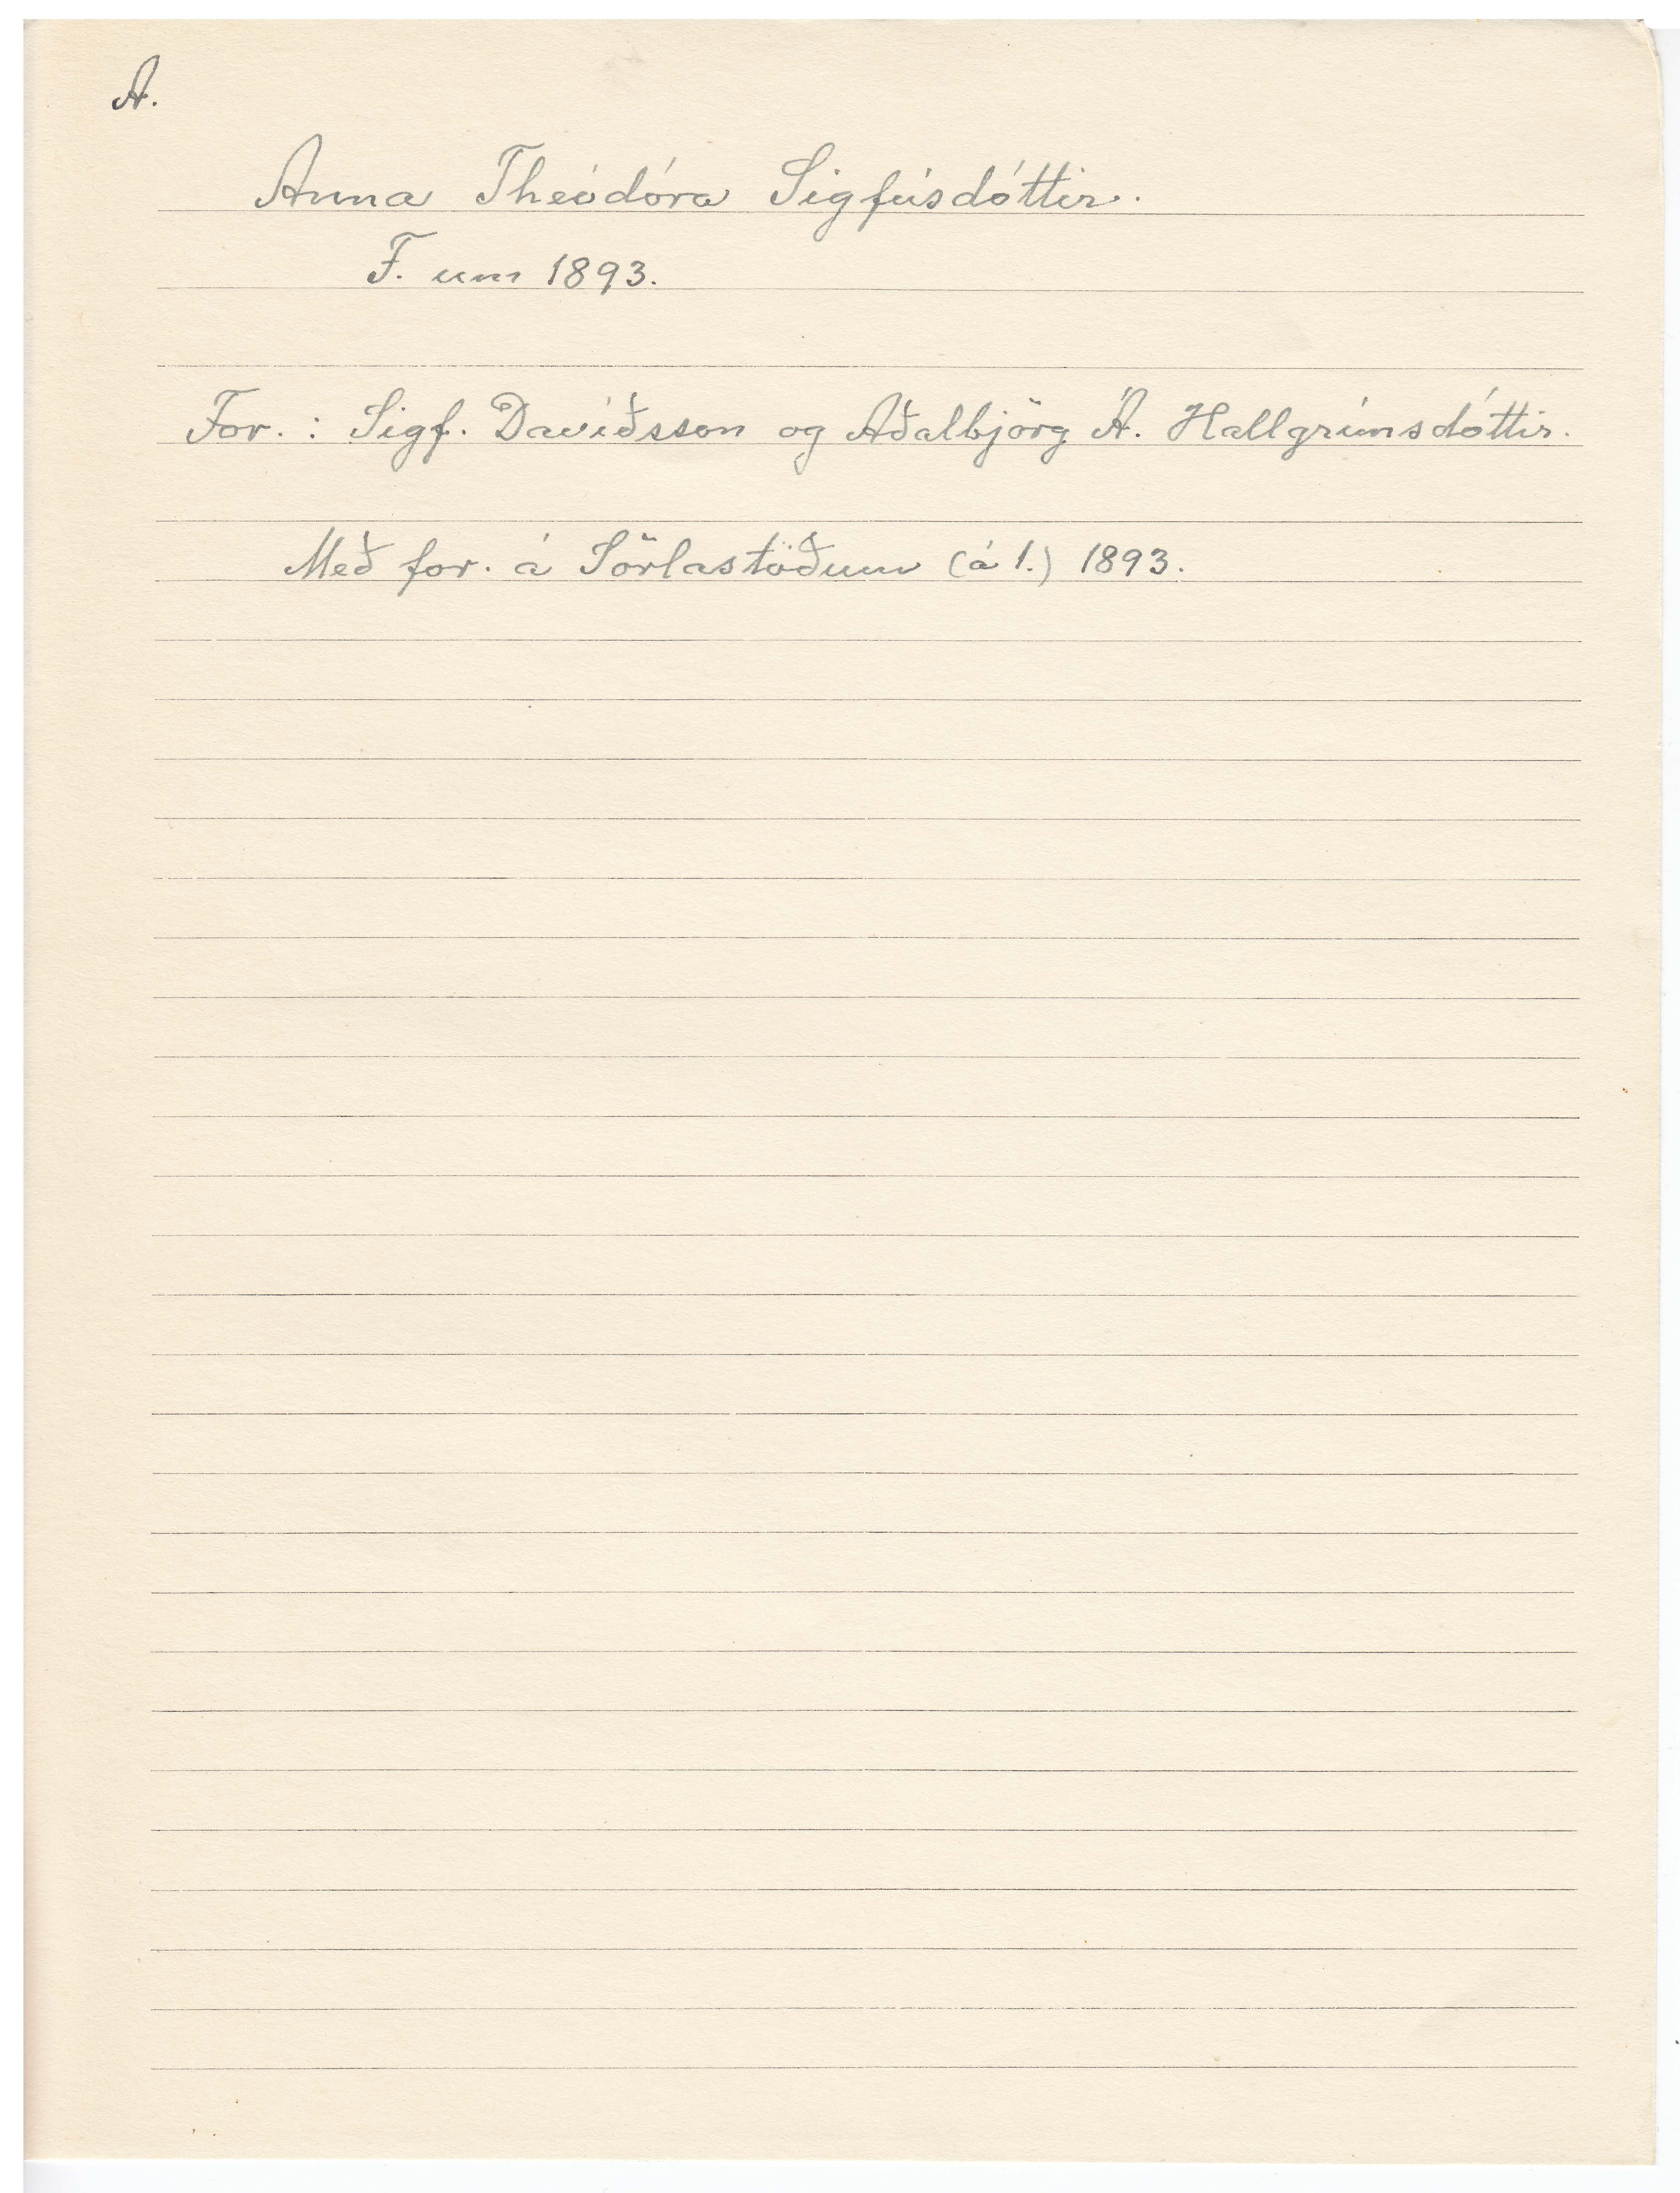 A.
Anna Theódóra Sigfúsdóttir.
F. um 1893.
For. : Sigf. Davíðsson og Aðalbjörg Á. Hallgrímsdóttir.
Með for. á Sörlastöðum (á 1.) 1893.